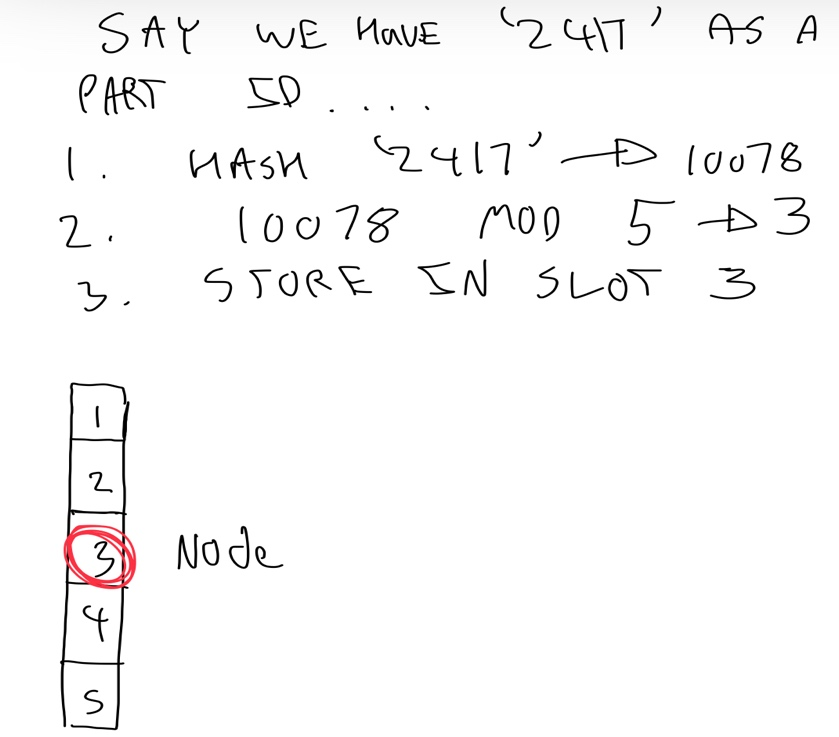 SAY WE HAVE '2417' AS A
PART ID....
1. HASH '2417' → 10078
2. 10078 MOD 5 → 3
3. STORE IN SLOT 3
1
2
3 Node
4
5